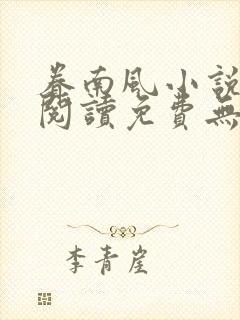 春南風小說
閱讀免費無
李青崖